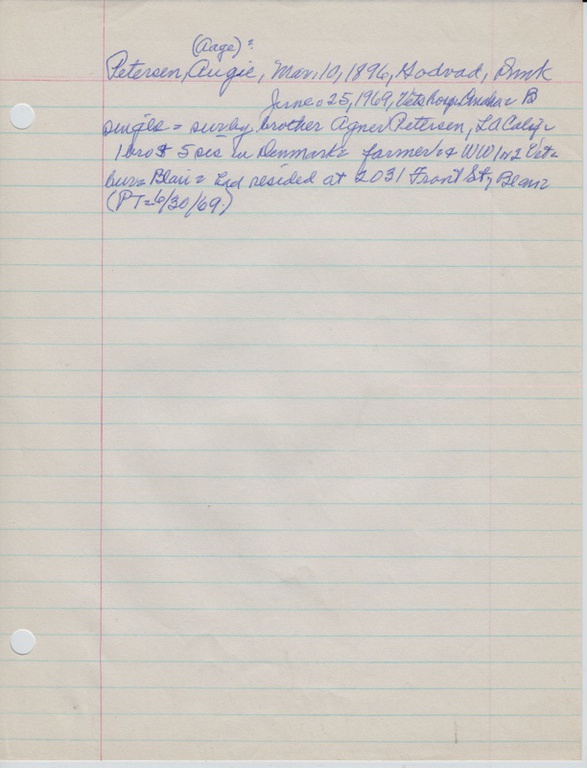 (Aage)=
Petersen, Augie, Mar. 10, 1896, Hodvad, Dmk
June 25, 1969, Vets Hosp. Omaha= B
single = surv by brother Agner Petersen, LA Calif=
1 bro & 5 sis in Denmark= farmer= & WW 1 or 2 Vet=
bur= Blair= had resided at 2031 Front St,
(PT=6/30/69)